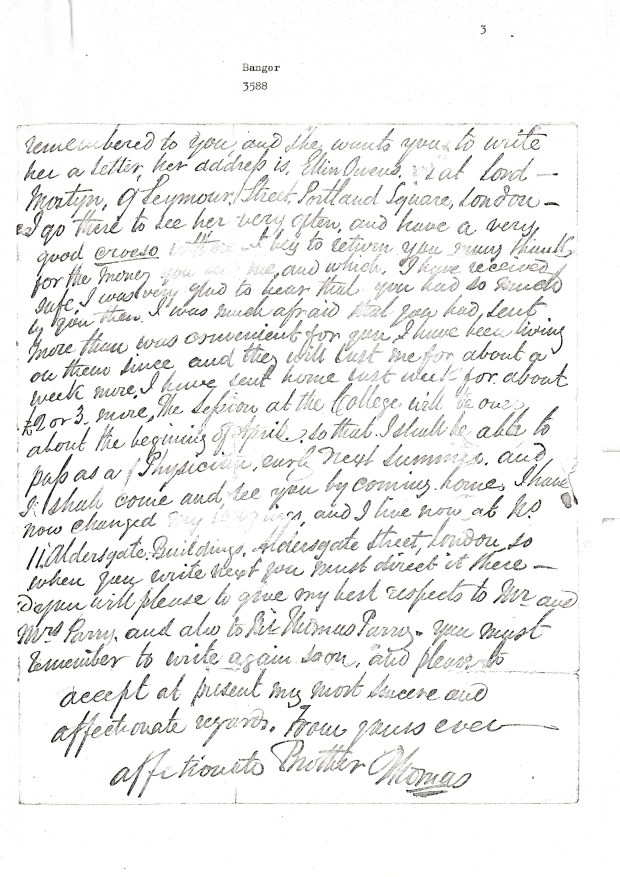 3
Bangor
3588
remembered to you, and she wants you to write
her a letter, her address is, Ellin Owens, at Lord —
Mostyn, 9 Seymour Street, Portland Square, London —
I go there to see her very often, and have a very
good croeso I beg to return you many thanks
for the money you me, and which, I have received
safe, I was very glad to hear that you had so much
by you then. I was much afraid that you had, sent
more than was convenient for you, I have been living
on them since and they will last me for about a
week more, I have sent home last week for about
£2 or 3, more, The session at the College will be over
about the begining of April, so that I shall be able to
pass as a Physician early next summer, and
I shall come and see you by coming home, I have
now changed my and I live now at No
11, Aldersgate Buildings, Aldersgate Street, London, so
when you write next you must direct it there —
you will please to give my best respects to Mr and
Mrs Parry, and also to Thomas Parry, you must
remember to write again soon, and please to
accept at present my most sincere and
affectionate regards. From yours ever
affectionate Brother Thomas